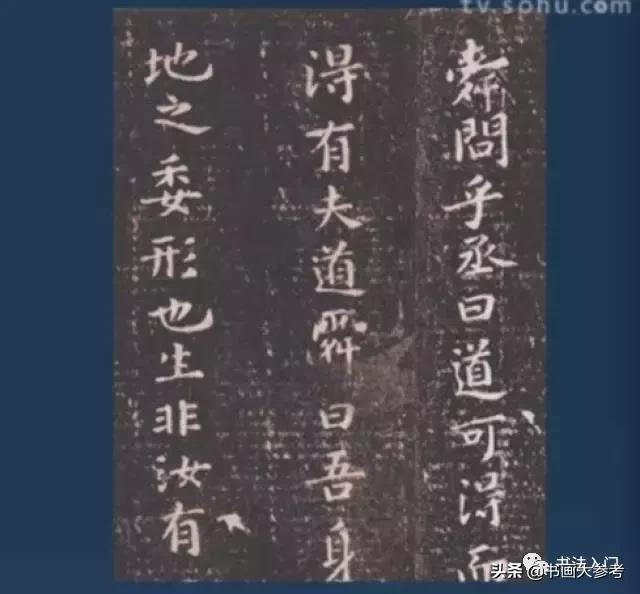 tv.sohu.com
舜問乎丞曰道可得而
得有夫道舜曰吾身
地之委形也生非汝有
书法入门
头条@书画大参考